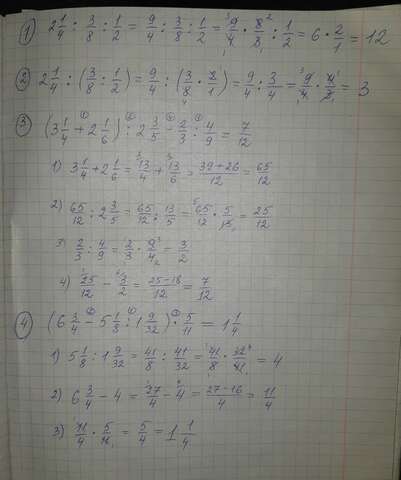 1) 2 1/4 : 3/8 : 1/2 = 9/4 : 3/8 : 1/2 = 9/4 · 8/3 : 1/2 = 6 · 2/1 = 12
2) 2 1/4 : (3/8 : 1/2) = 9/4 : (3/8 · 2/1) = 9/4 : 3/4 = 9/4 · 4/3 = 3
3) (3 1/4 + 2 1/6) : 2 3/5 - 2/3 : 4/9 = 7/12
1) 3 1/4 + 2 1/6 = 13/4 + 13/6 = 39+26/12 = 65/12
2) 65/12 : 2 3/5 = 65/12 : 13/5 = 65/12 · 5/13 = 25/12
3) 2/3 : 4/9 = 2/3 · 9/4 = 3/2
4) 25/12 - 3/2 = 25-18/12 = 7/12
4) (6 3/4 - 5 1/8 : 1 9/32) · 5/11 = 1 1/4
1) 5 1/8 : 1 9/32 = 41/8 : 41/32 = 41/8 · 32/41 = 4
2) 6 3/4 - 4 = 27/4 - 4 = 27-16/4 = 11/4
3) 11/4 · 5/11 = 5/4 = 1 1/4